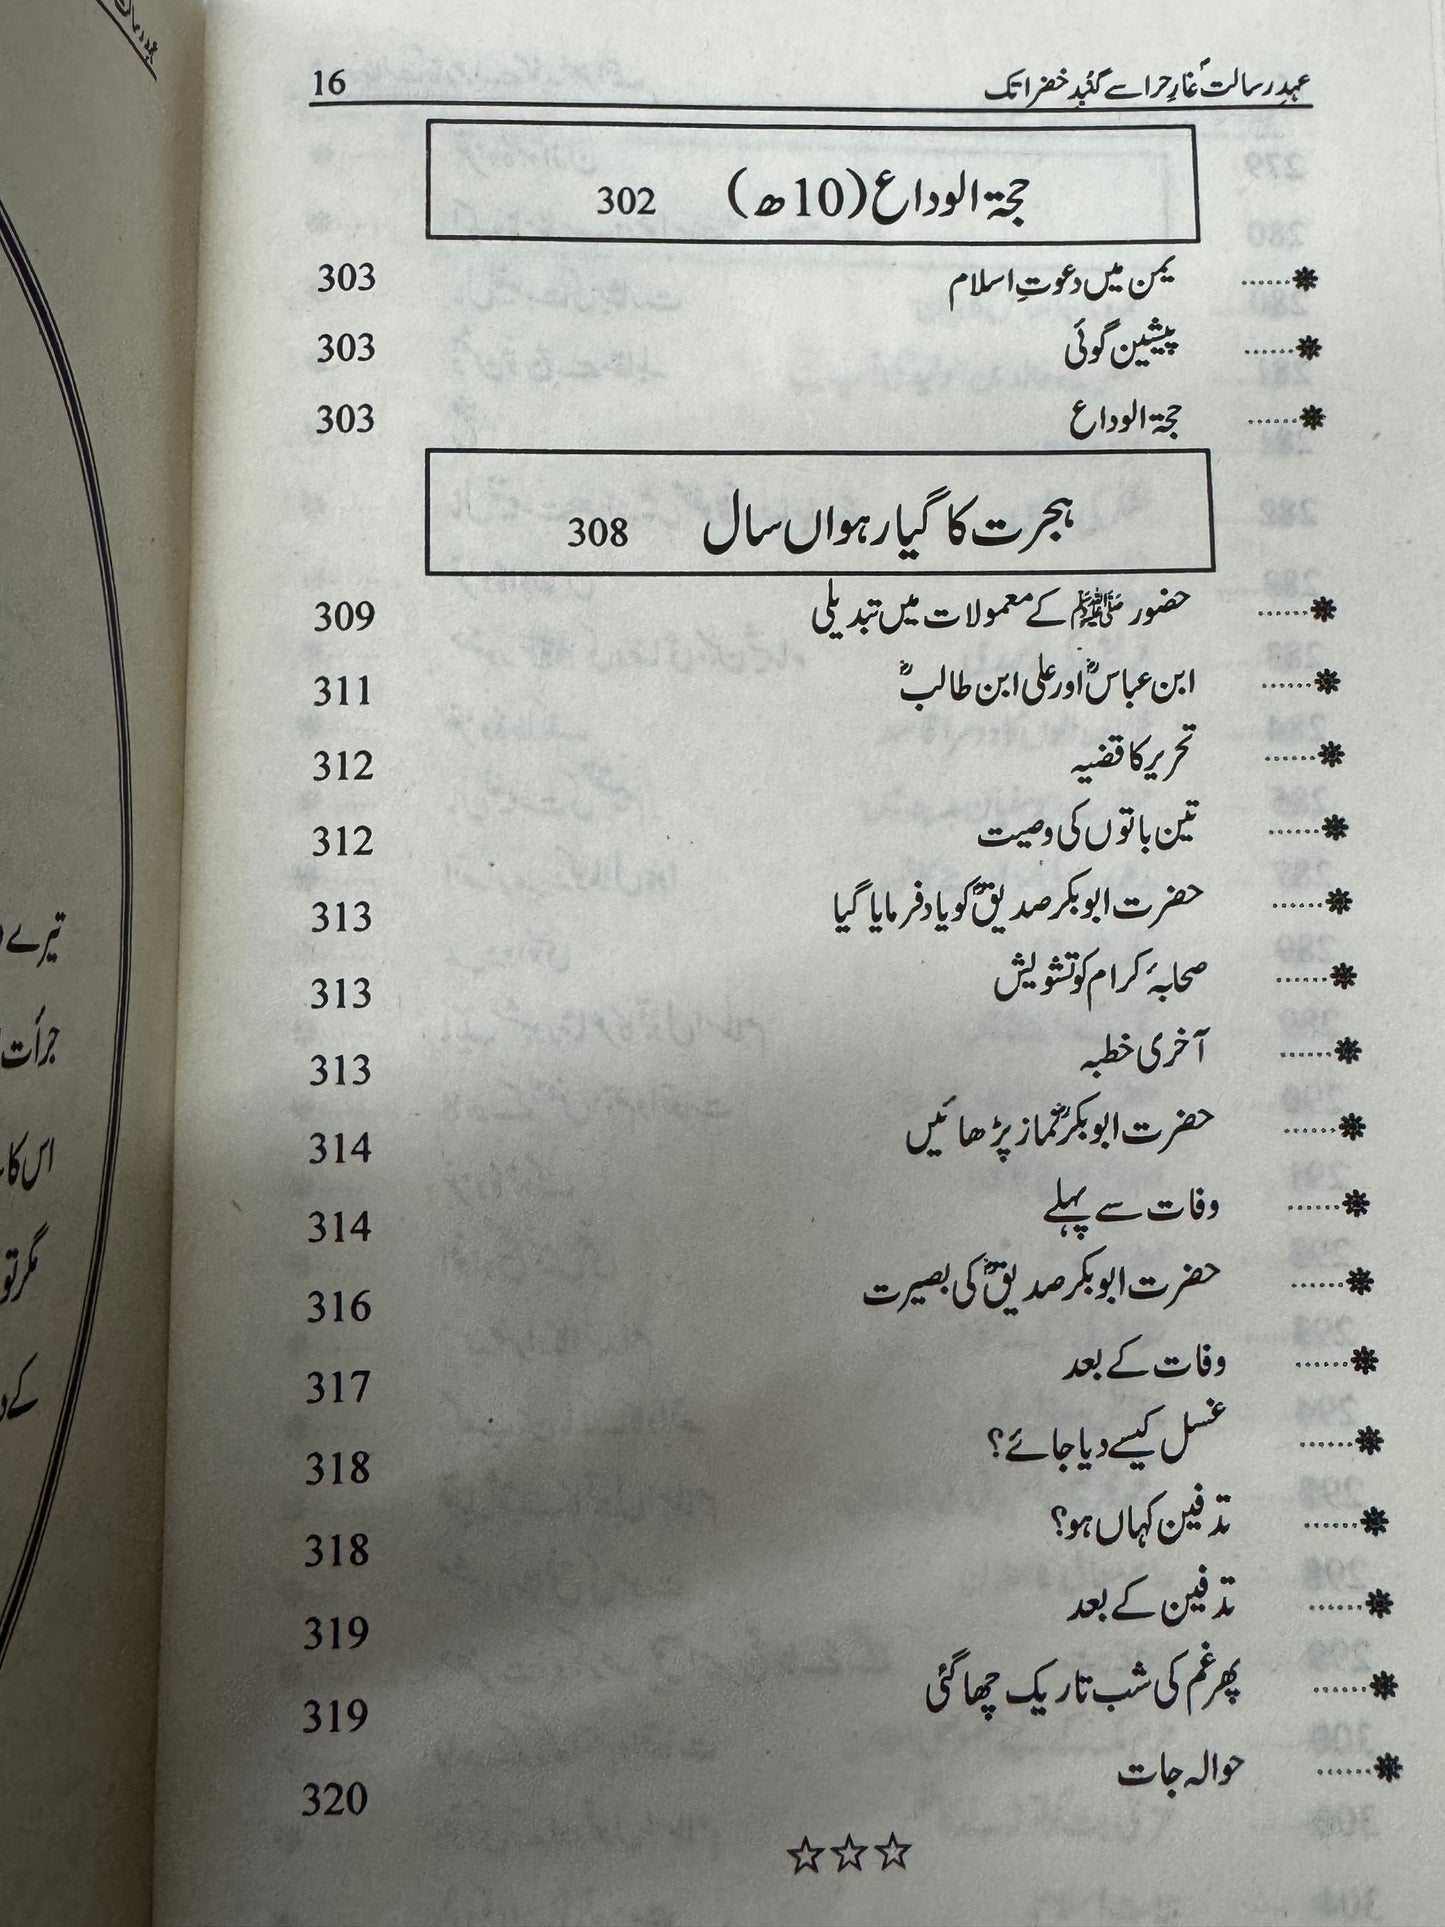 عہدِ رسالتؐ غارِ حرا سے گنبدِ خضرا تک 16
حجۃ الوداع (10ھ) 302
❋...... یمن میں دعوتِ اسلام 303
❋...... پیشین گوئی 303
❋...... حجۃ الوداع 303
ہجرت کا گیارہواں سال 308
❋...... حضور ﷺ کے معمولات میں تبدیلی 309
❋...... ابن عباسؓ اور علی ابن طالبؓ 311
❋...... تحریر کا قضیہ 312
❋...... تین باتوں کی وصیت 312
❋...... حضرت ابوبکر صدیقؓ کو یاد فرمایا گیا 313
❋...... صحابۂ کرام کو تشویش 313
❋...... آخری خطبہ 313
❋...... حضرت ابوبکرؓ نماز پڑھائیں 314
❋...... وفات سے پہلے 314
❋...... حضرت ابوبکر صدیقؓ کی بصیرت 316
❋...... وفات کے بعد 317
❋...... غسل کیسے دیا جائے؟ 318
❋...... تدفین کہاں ہو؟ 318
❋...... تدفین کے بعد 319
❋...... پھر غم کی شب تاریک چھا گئی 319
❋...... حوالہ جات 320
☆☆☆
تیرے
جرأت
اس کا
مگر تو
کے